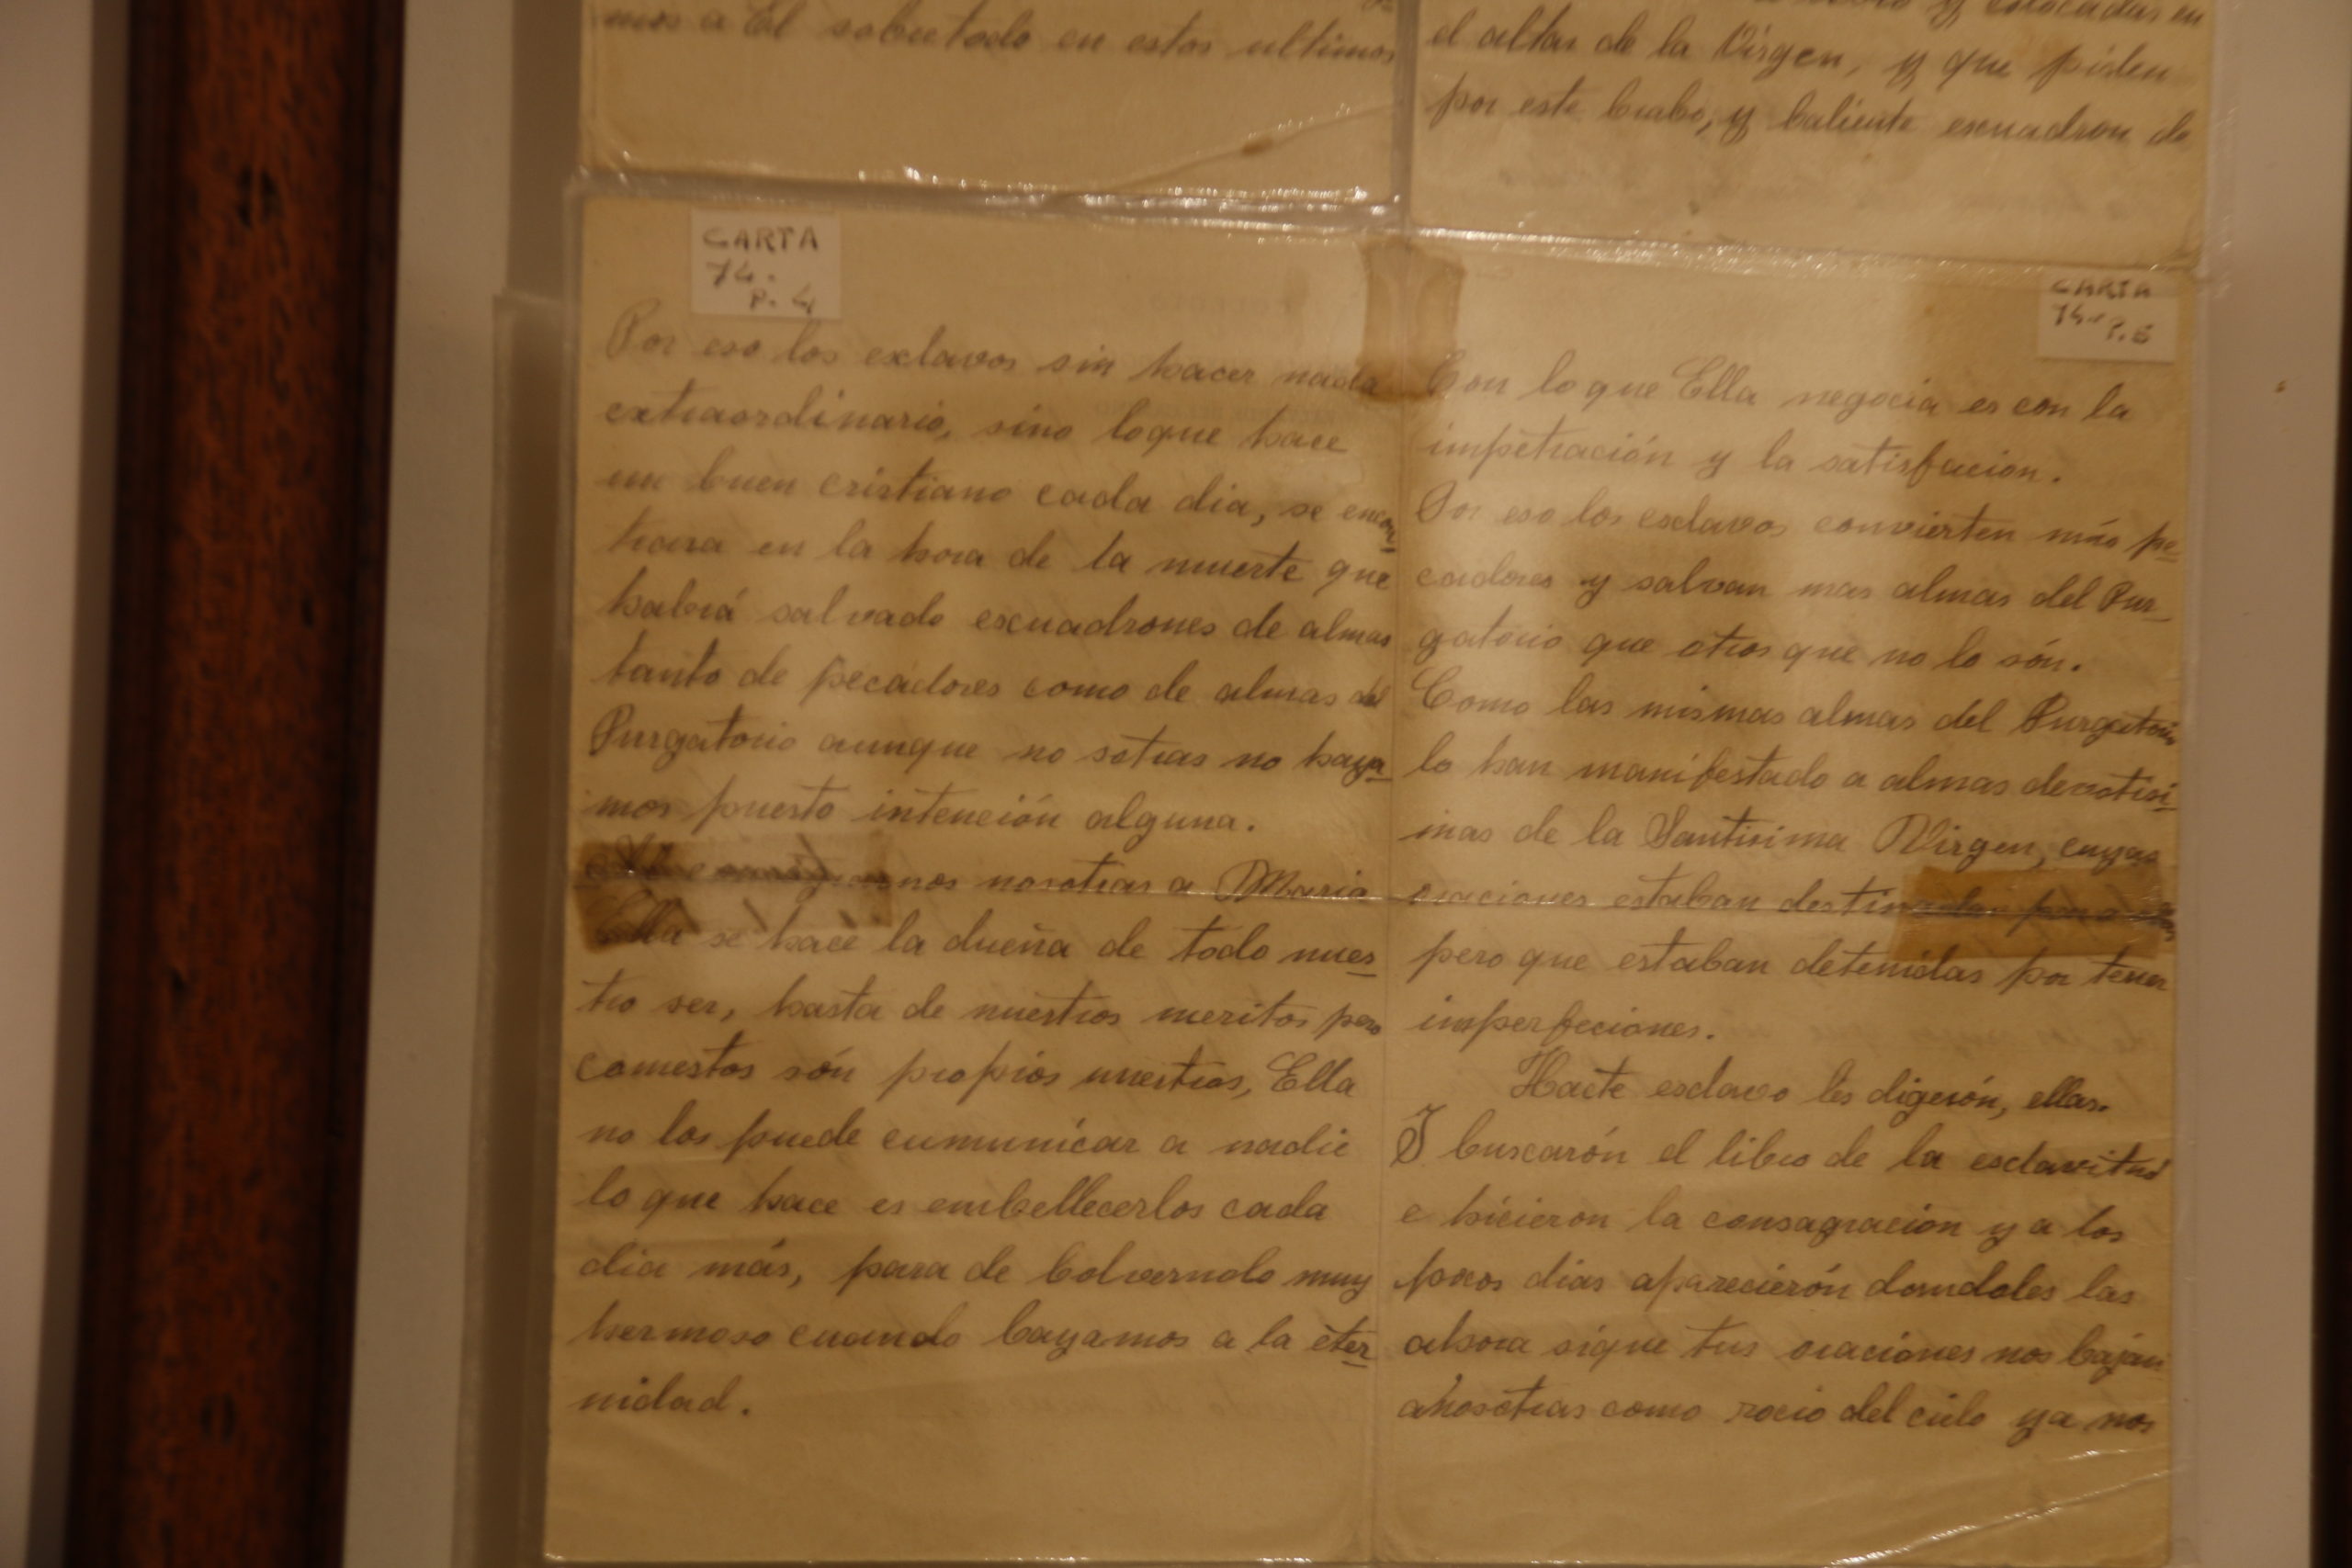 mos a El sobretodo en estos ultimos
y colocadas en
el altar de la Virgen, y que piden
por este brabo, y baliente escuadron de
CARTA
74.
P. 4
Por eso los exlavos sin hacer nada
extraordinario, sino loque hace
un buen cristiano cada dia, se encon-
trara en la hora de la muerte que
habrá salvado escuadrones de almas
tanto de pecadores como de almas del
Purgatorio aunque no sotras no haya-
mos puesto intención alguna.
nos nosotras a Maria
Ella se hace la dueña de todo nues-
tro ser, hasta de nuestros meritos pero
comestos són propios nuestros, Ella
no los puede cumunicar a nadie
lo que hace es embellecerlos cada
dia más, para de bolvernolo muy
hermoso cuando bayamos a la eter-
nidad.
CARTA
74- P.
Con lo que Ella negocia es con la
impetración y la satisfacion.
Por eso los esclavos convierten más pe-
cadores y salvan mas almas del Pur-
gatorio que otros que no lo són.
Como las mismas almas del Purgatorio
lo han manifestado a almas devotisi-
mas de la Santisima Virgen, cuyas
oraciones estaban destinadas para
pero que estaban detenidas por tener
imperfeciones.
Hacte esclavo les digerón, ellas.
I buscarón el libro de la esclavitud
e hicieron la consagracion y a los
pocos dias aparecierón domdoles las
ahora sique tus oraciónes nos bajan
anosotras como rocio del cielo ya nos